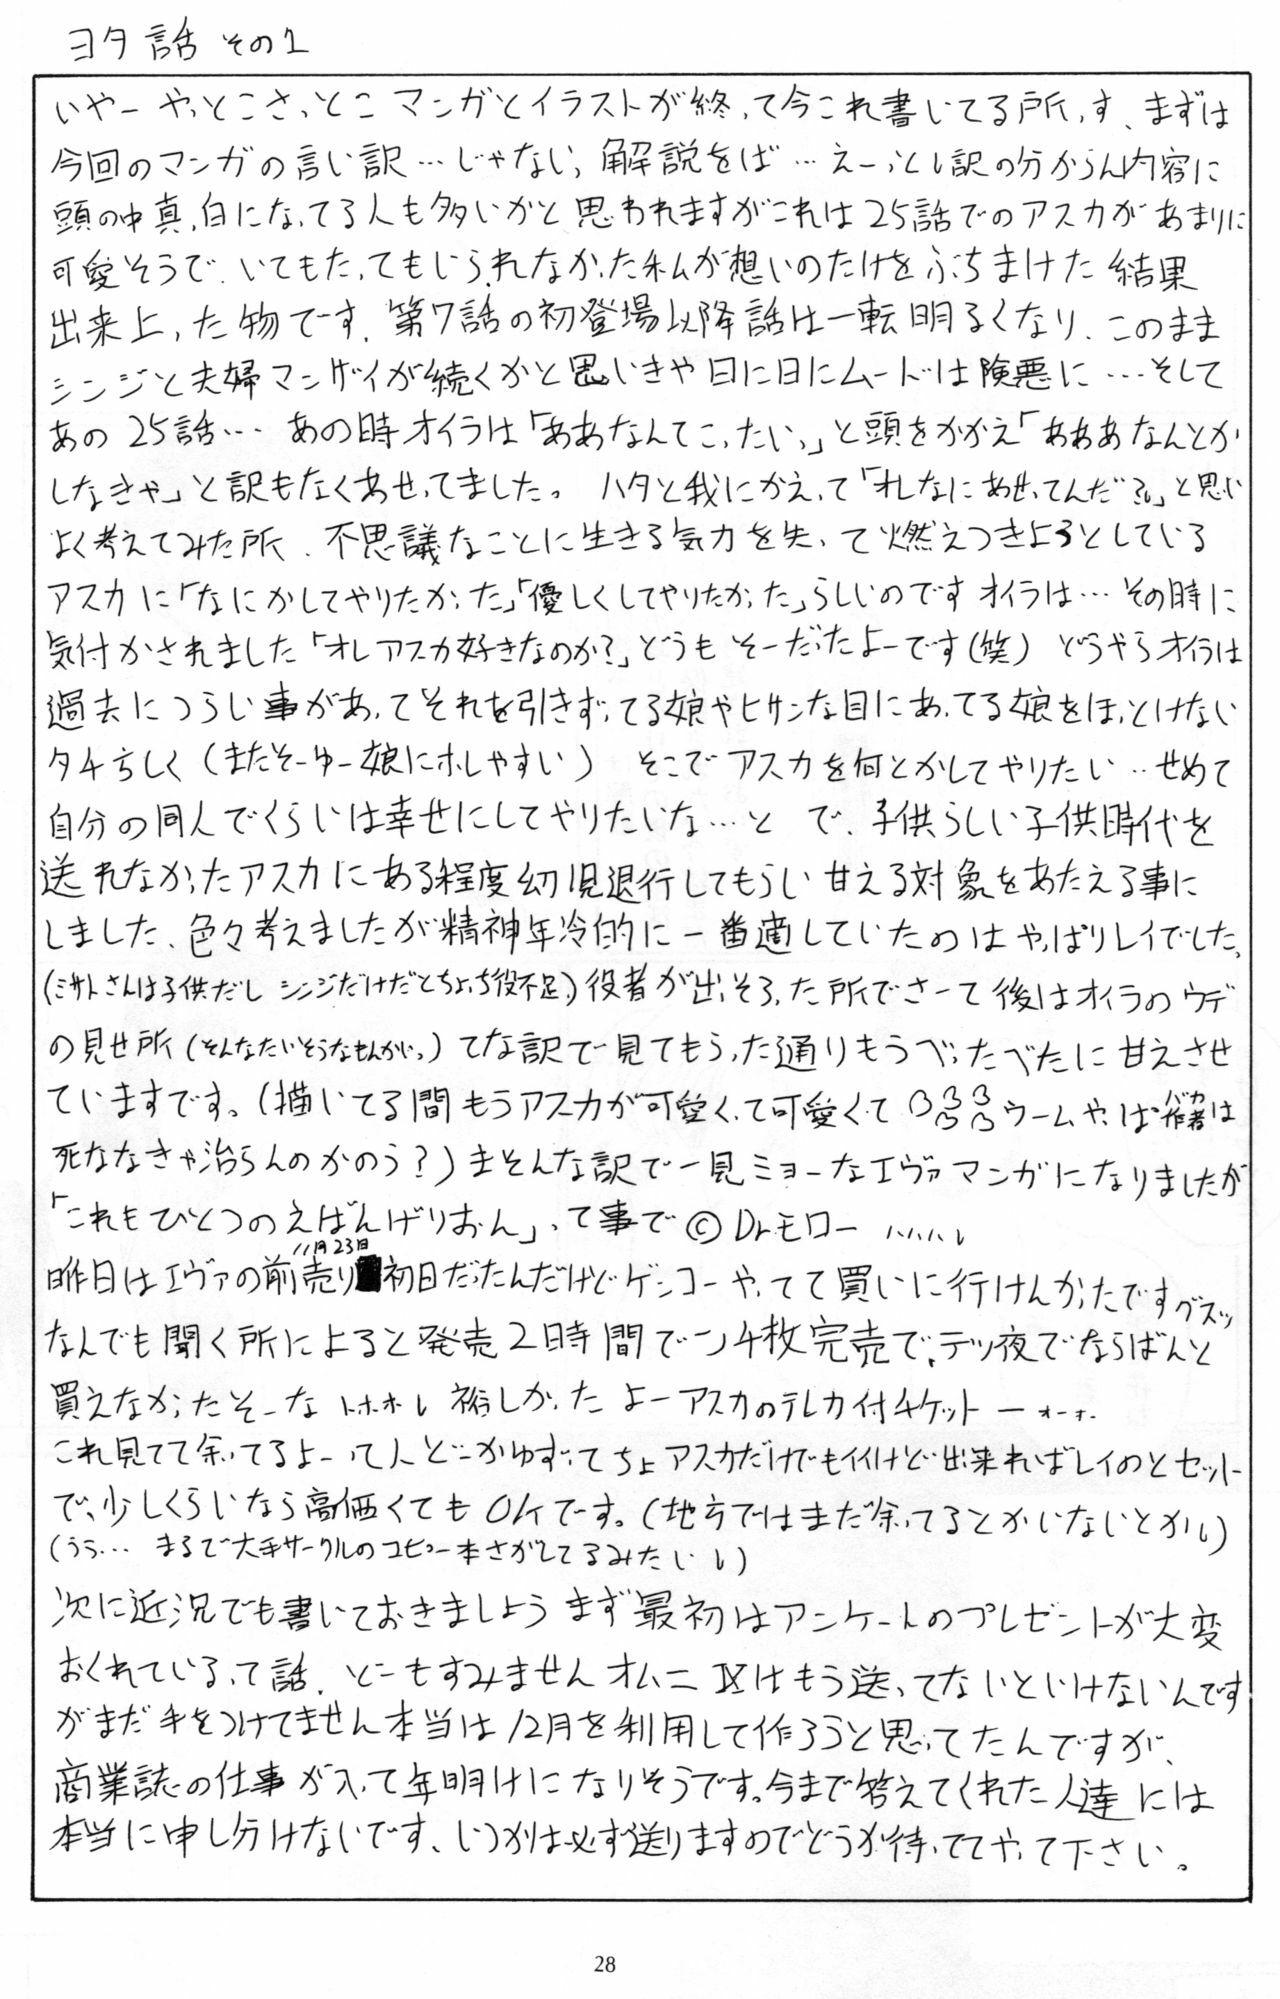 ヨタ話 その1
いやー やっとこさっとこ マンガとイラストが終って今これ書いてる所っす、まずは
今回のマンガの言い訳…じゃない、解説をば…えーっとい訳の分からん内容に
頭の中真っ白になってる人も多いかと思われますがこれは25話でのアスカがあまりに
可愛そうで、いてもたってもいられなかった私が想いのたけをぶちまけた結果
出来上った物です。第7話の初登場以降話は一転明るくなり、このまま
シンジと夫婦マンザイが続くかと思いきや日に日にムードは険悪に…そして
あの25話… あの時オイラは「ああなんてこったいっ」と頭をかかえ「あああなんとか
しなきゃ」と訳もなくあせってました。 ハタと我にかえって「オレなにあせってんだ?」と思い
よく考えてみた所、不思議なことに生きる気力を失って燃えつきようとしている
アスカに「なにかしてやりたかった」「優しくしてやりたかった」らしいのですオイラは…その時に
気付かされました「オレアスカ好きなのか?」どうもそーだったよーです(笑) どうやらオイラは
過去につらい事があってそれを引きずってる娘やヒサンな目にあってる娘をほっとけない
タチらしく(またそーゆー娘にホレやすい) そこでアスカを何とかしてやりたい…せめて
自分の同人でくらいは幸せにしてやりたいな…と で、子供らしい子供時代を
送れなかったアスカにある程度幼児退行してもらい甘える対象をあたえる事に
しました、色々考えましたが精神年冷的に一番適していたのはやっぱりレイでした。
(ミサトさんは子供だし シンジだけだとちょっち役不足) 役者が出そろった所でさーて後はオイラのウデ
の見せ所(そんなたいそうなもんかいっ)てな訳で見てもらった通りもうべったべたに甘えさせ
ていますです。(描いてる間もうアスカが可愛くって可愛くて ウームやっぱ作者(バカ)は
死ななきゃ治らんのかのう?)まそんな訳で一見ミョーなエヴァマンガになりましたが
「これもひとつのえばんげりおん」って事で ©Dr.モロー
昨日はエヴァの前売り初日(11月23日)だったんだけどゲンコーやってて買いに行けんかったですグスッ
なんでも聞く所によると発売2時間で一万4枚完売で、テツ夜でならばんと
買えなかったそーな トホホ 欲しかったよーアスカのテレカ付チケットー
これ見てて余ってるよーって人どーかゆずってちょ アスカだけでもイイけど出来ればレイのとセット
で、少しくらいなら高価くてもOKです。(地方ではまだ余ってるとかいないとか)
(うう… まるで大手サークルのコピー本さがしてるみたい)
次に近況でも書いておきましょう まず最初はアンケートのプレゼントが大変
おくれているって話、どーもすみません オムニⅨはもう送ってないといけないんです
がまだ手をつけてません本当は12月を利用して作ろうと思ってたんですが、
商業誌の仕事が入って年明けになりそうです。今まで答えてくれた人達には
本当に申し分けないです、いつかは必ず送りますのでどうか待っててやって下さい。
28